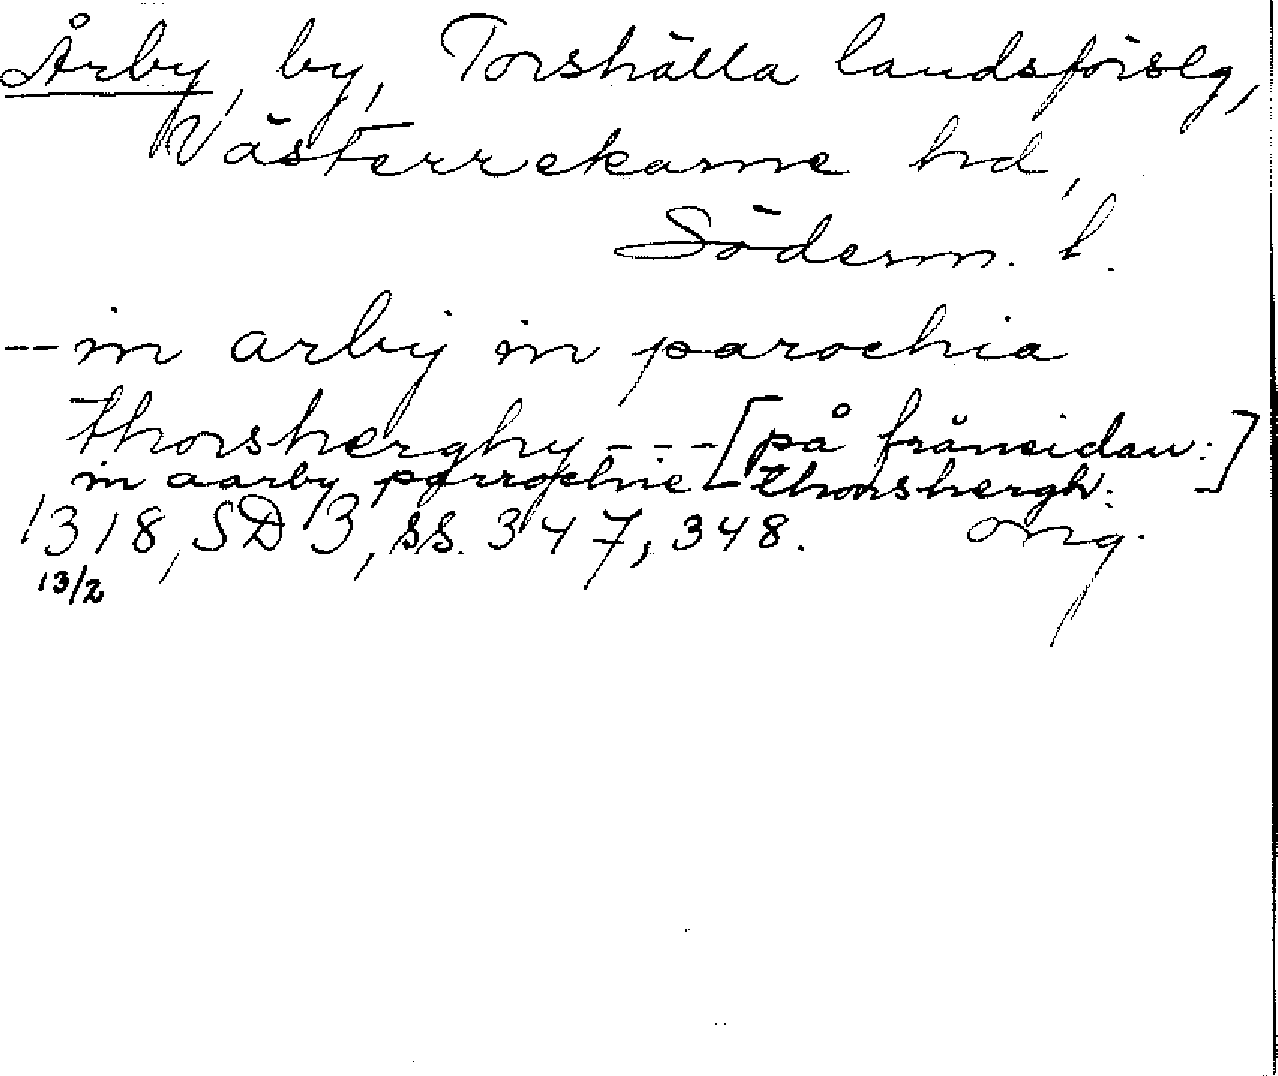 Årby, by, Torshälla landsförslg,
Västerrekarne hd,
Söderm. l.
-- in arby in parochia
thorsherghy --- [på frånsidan:
in aarby parrochie thorshergh.]
1318, SD 3, ss. 347, 348. orig.
13/2